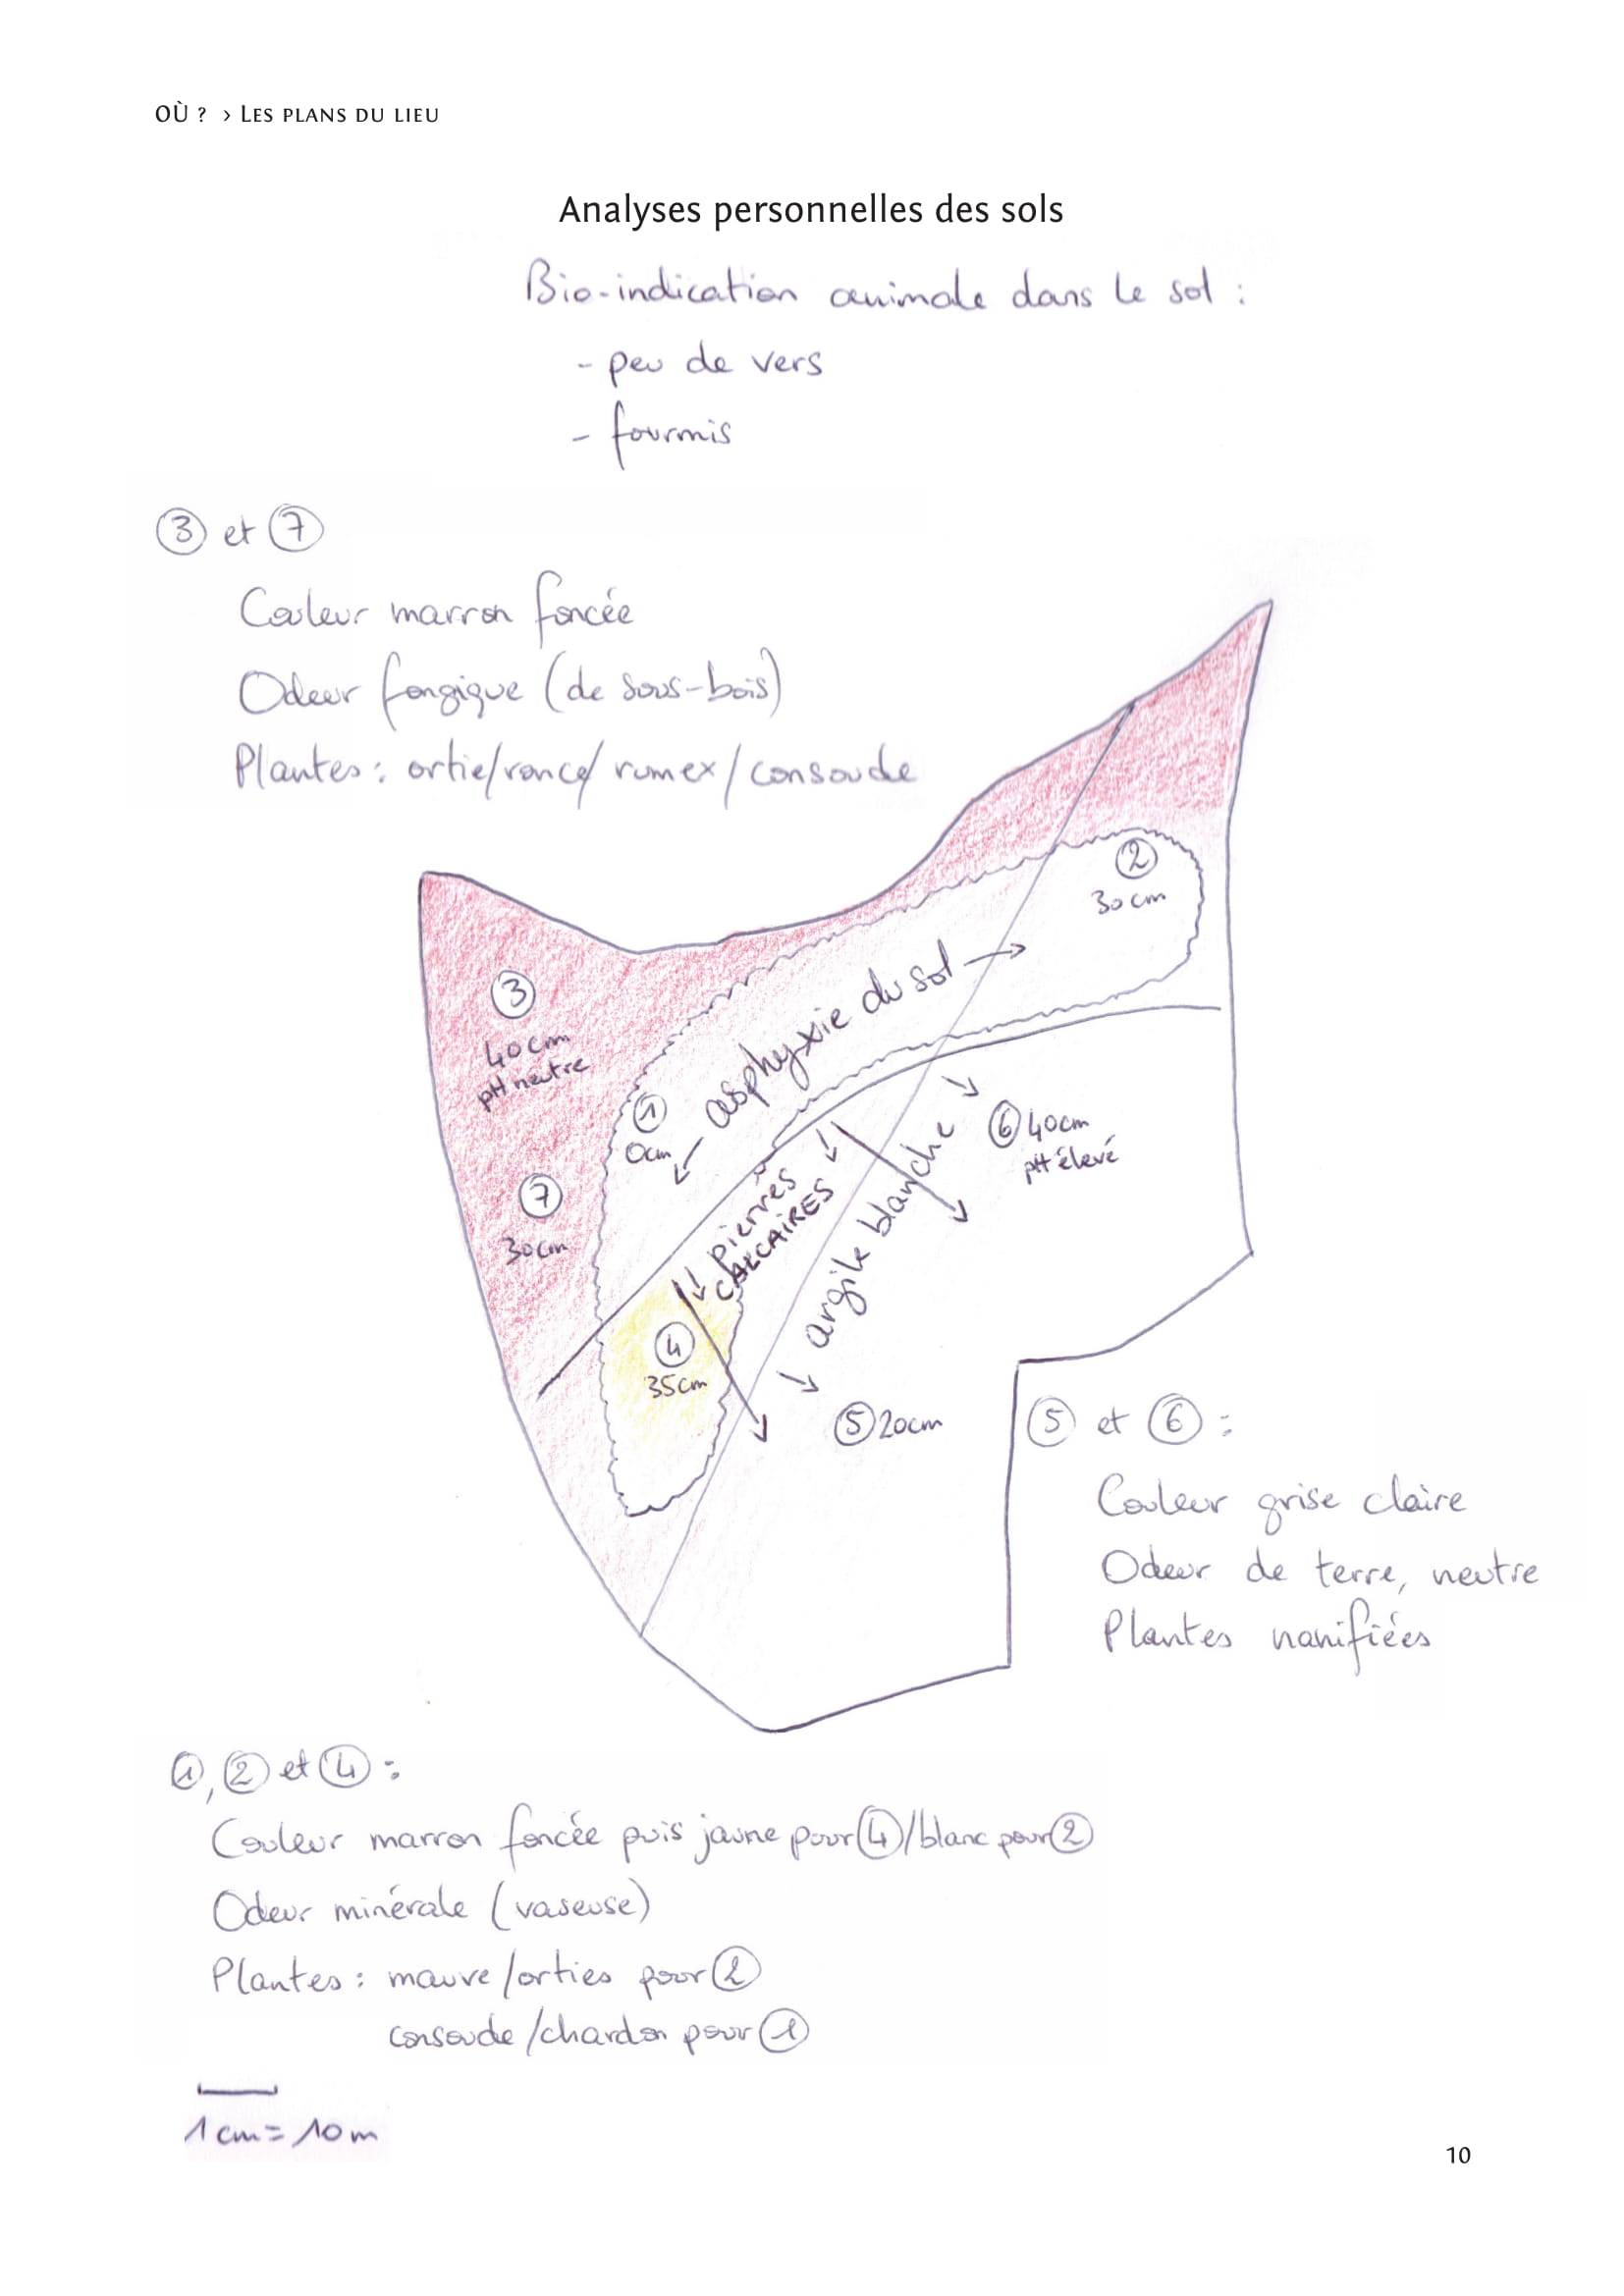 OÙ ? › Les plans du lieu
Analyses personnelles des sols
Bio-indication animale dans le sol :
- peu de vers
- fourmis
③ et ⑦
Couleur marron foncée
Odeur fongique (de sous-bois)
Plantes : ortie/ronce/rumex/consoude
②
30 cm
③
40 cm
pH neutre
← asphyxie du sol →
①
0cm
⑥ 40cm
pH élevé
⑦
30cm
pierres
CALCAIRES
argile blanche
④
35cm
⑤ 20cm
⑤ et ⑥ :
Couleur grise claire
Odeur de terre, neutre
Plantes nanifiées
①, ② et ④ :
Couleur marron foncée puis jaune pour ④/blanc pour ②
Odeur minérale (vaseuse)
Plantes : mauve/orties pour ②
consoude/chardon pour ①
1 cm = 10 m
10